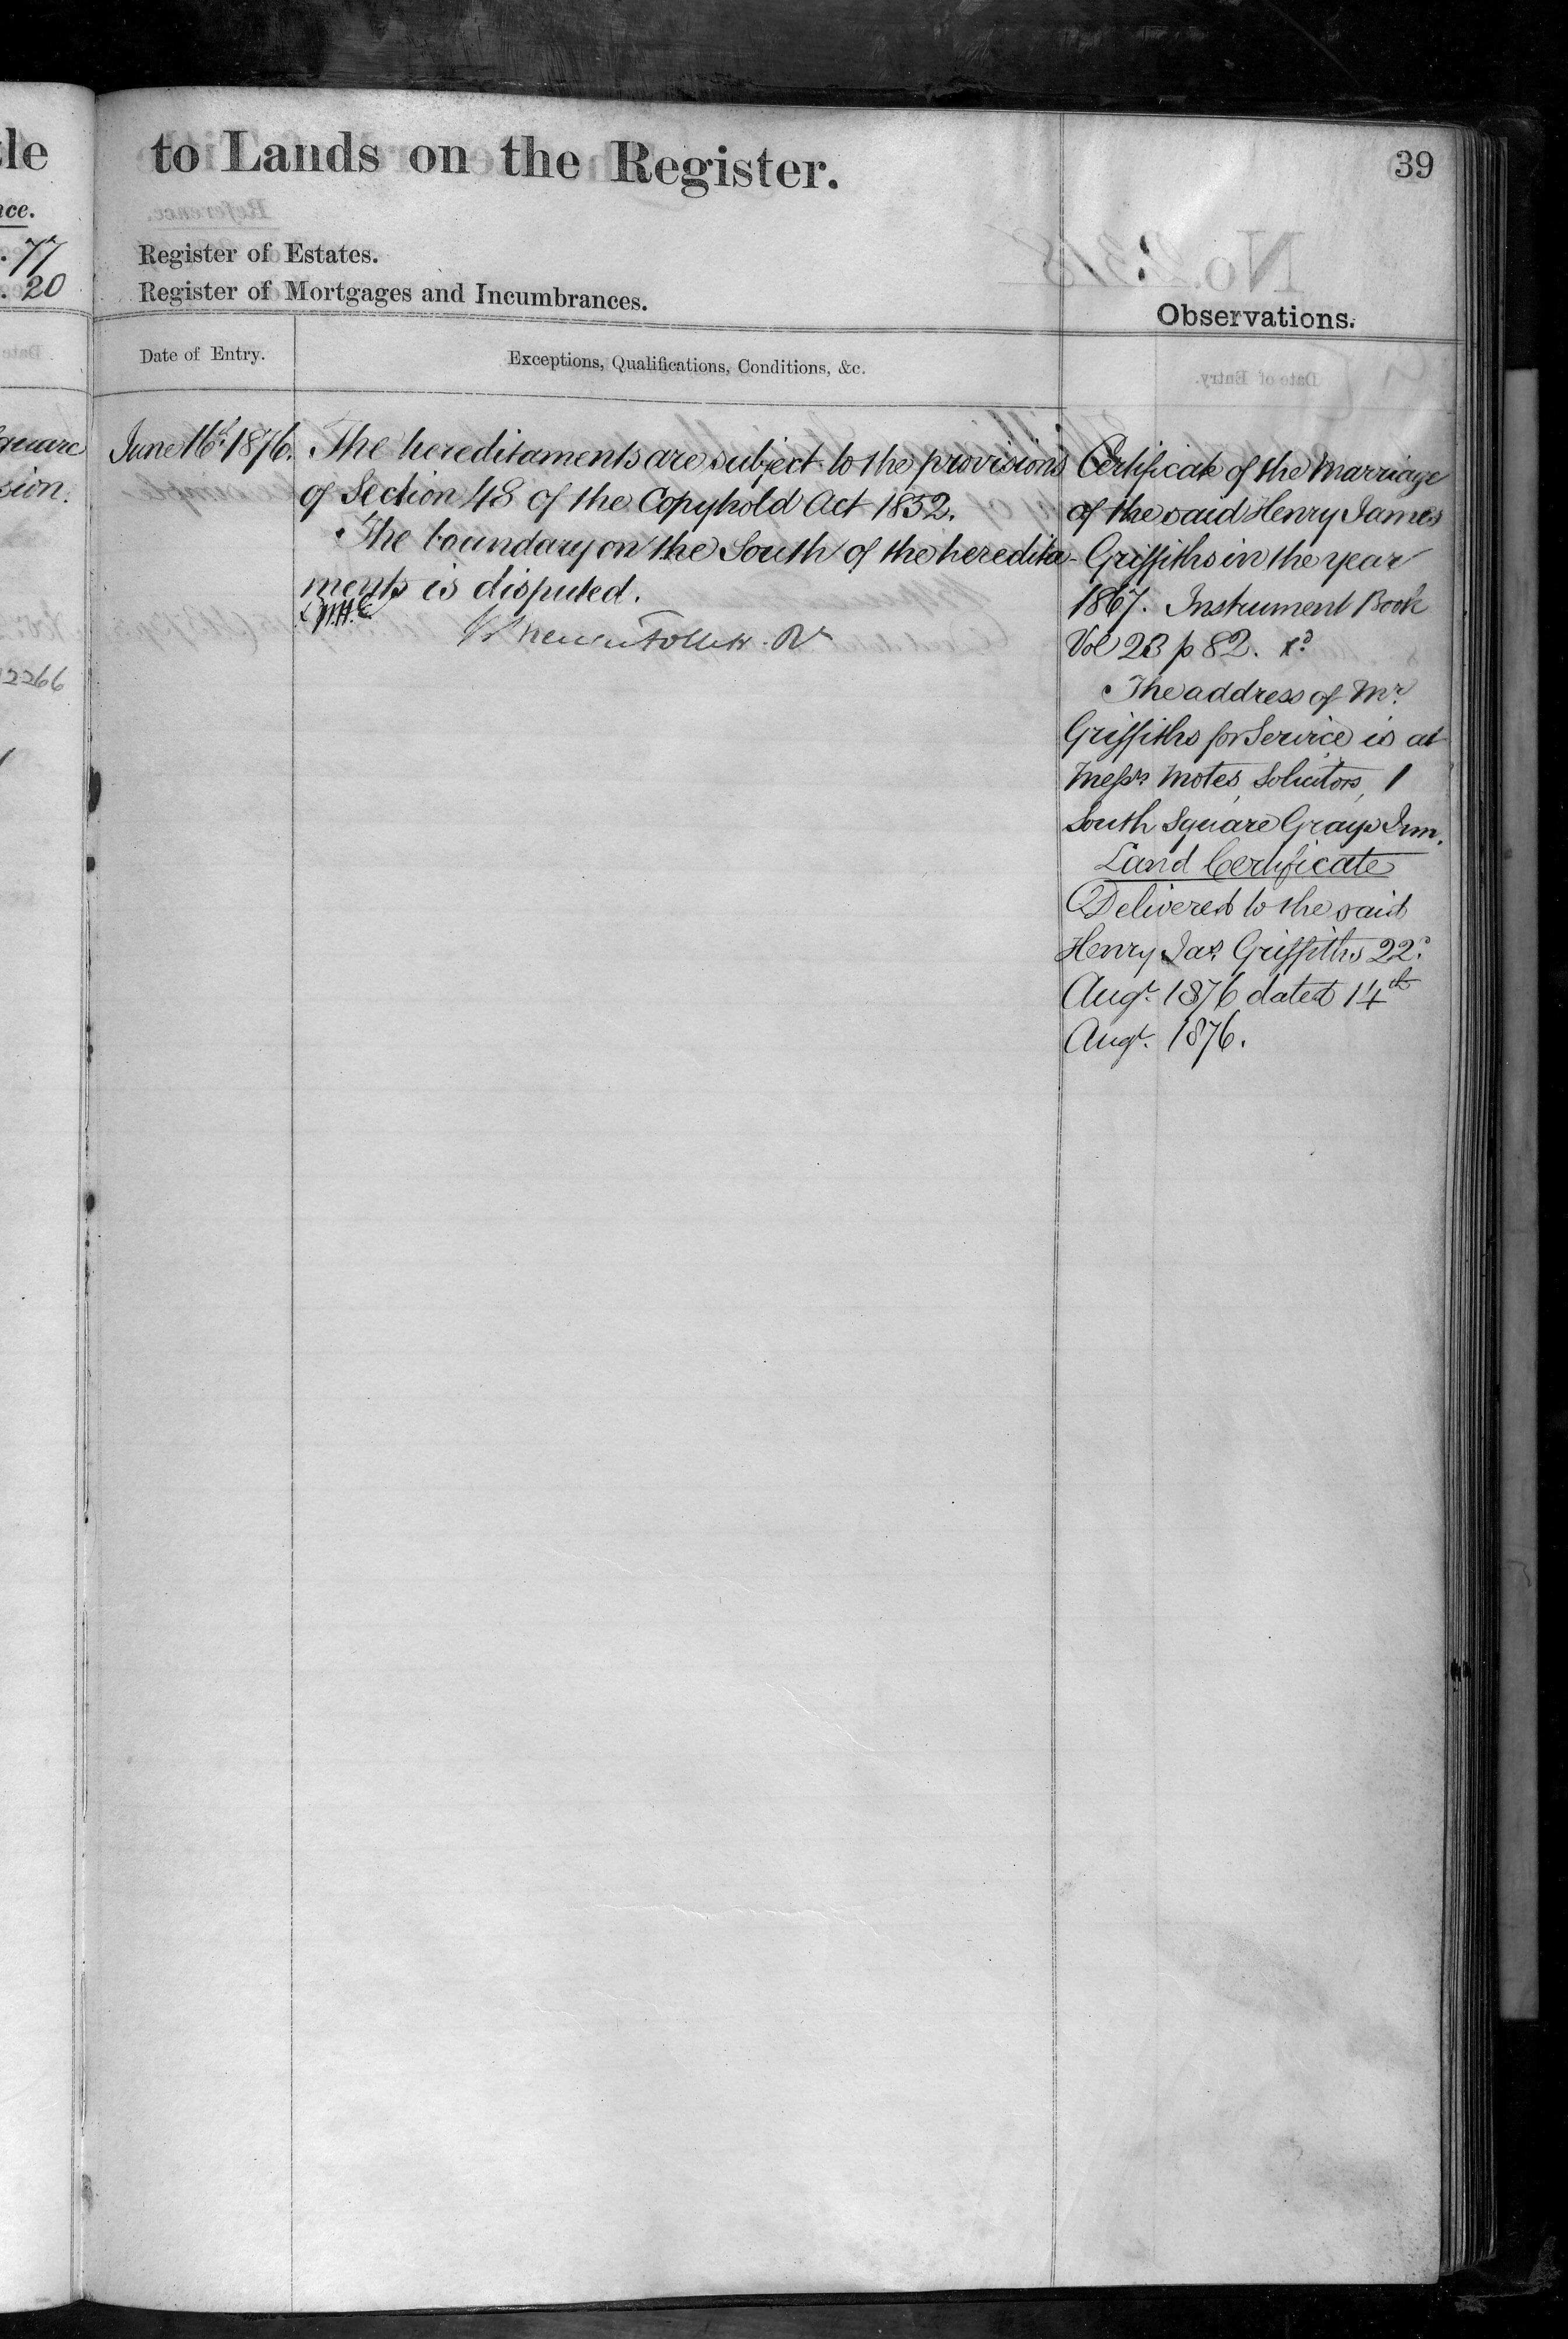 tle
to Lands on the Register.
39
nce.
. 77
. 20
Register of Estates.
Register of Mortgages and Incumbrances.
Observations.
Date of Entry.
Exceptions, Qualifications, Conditions, &c.
Square
sion.
2266
June 16th 1876.
The hereditaments are subject to the provisions
of Section 48 of the Copyhold Act 1852.
The boundary on the South of the heredita-
ments is disputed.
Certificate of the Marriage
of the said Henry James
Griffiths in the year
1867. Instrument Book
Vol 23 p 82. xd
The address of Mr.
Griffiths for Service is at
Messrs Motes, Solicitors, 1
South Square Grays Inn.
Land Certificate
Delivered to the said
Henry Jas. Griffiths 22d
Augt. 1876 dated 14th
Augt. 1876.